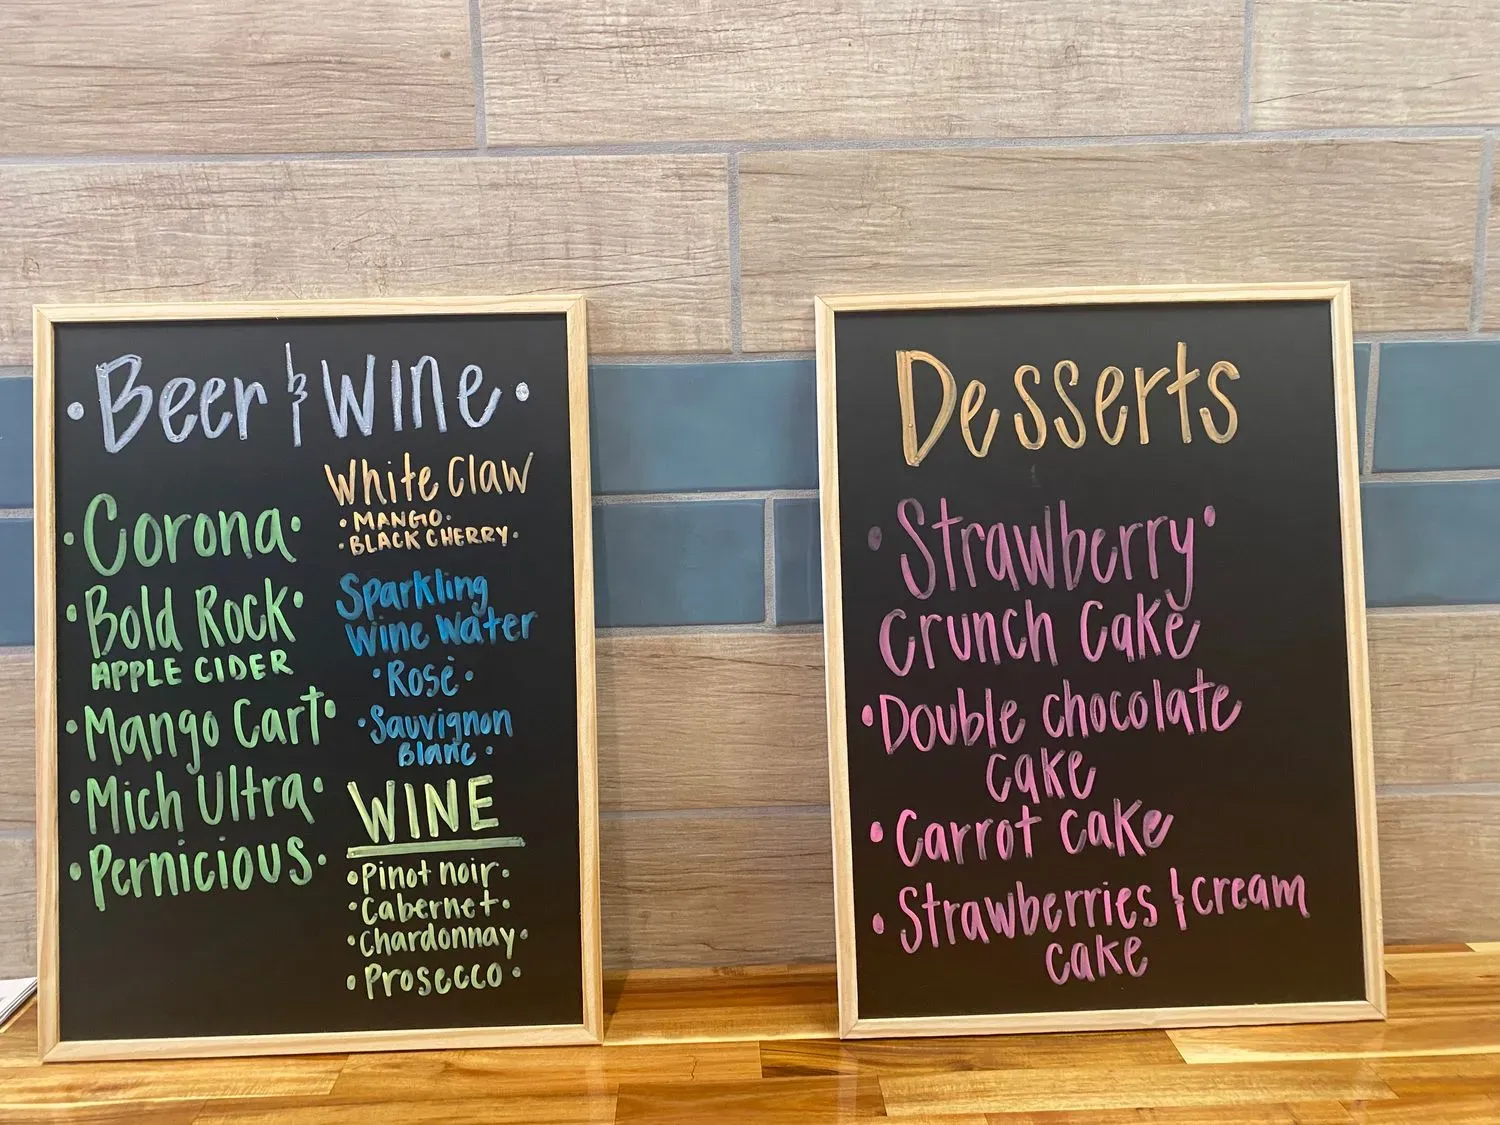 • Beer & WINE •
• Corona •
• Bold Rock •
APPLE CIDER
• Mango Cart •
• Mich Ultra •
• Pernicious •
White Claw
• MANGO •
• BLACK CHERRY •
Sparkling
Wine Water
• Rosé •
• Sauvignon
Blanc •
WINE
• Pinot noir •
• Cabernet •
• Chardonnay •
• Prosecco •
Desserts
• Strawberry •
Crunch Cake
• Double chocolate
cake
• Carrot cake
• Strawberries & cream
cake